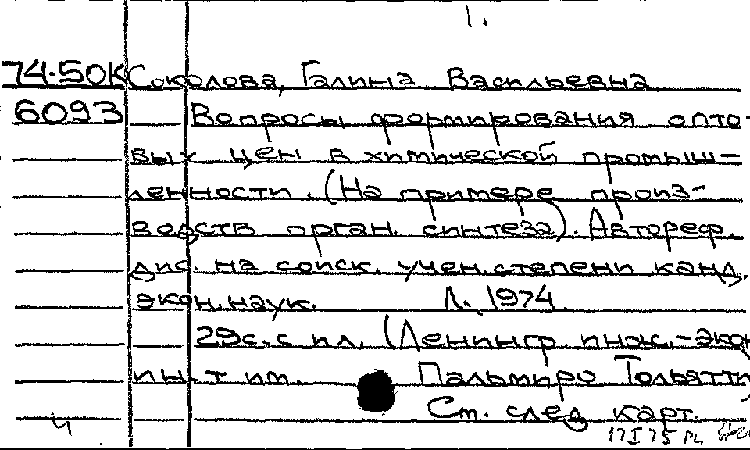 1.
74-50K Соколова, Галина Васильевна
6093 Вопросы формирования опто-
вых цен в химической промыш-
ленности. (На примере произ-
водств орган. синтеза). Автореф.
дис. на соиск. учен. степени канд.
экон. наук. Л., 1974.
29с. с ил. (Ленингр инж.-экон
ин-т им. Пальмиро Тольятти
См. след карт.
4 17 I 75